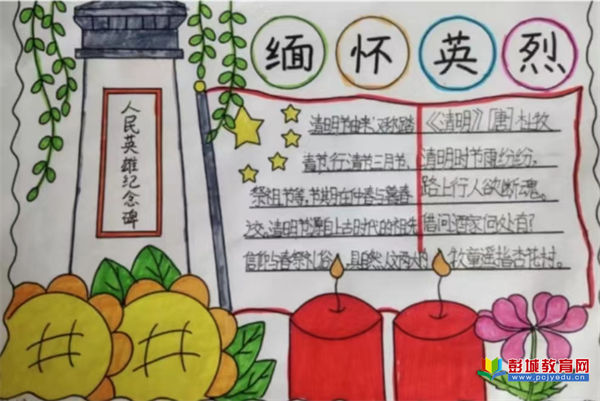 缅怀英烈
人民英雄纪念碑
清明节由来:又称踏
青节、行清节、三月节、
祭祖节等,节期在仲春与暮春
之交。清明节源自上古时代的祖先
信仰与春祭礼俗,具自然人文两大内
《清明》[唐]杜牧
清明时节雨纷纷,
路上行人欲断魂。
借问酒家何处有?
牧童遥指杏花村。
彭城教育网
www.pcjyedu.cn